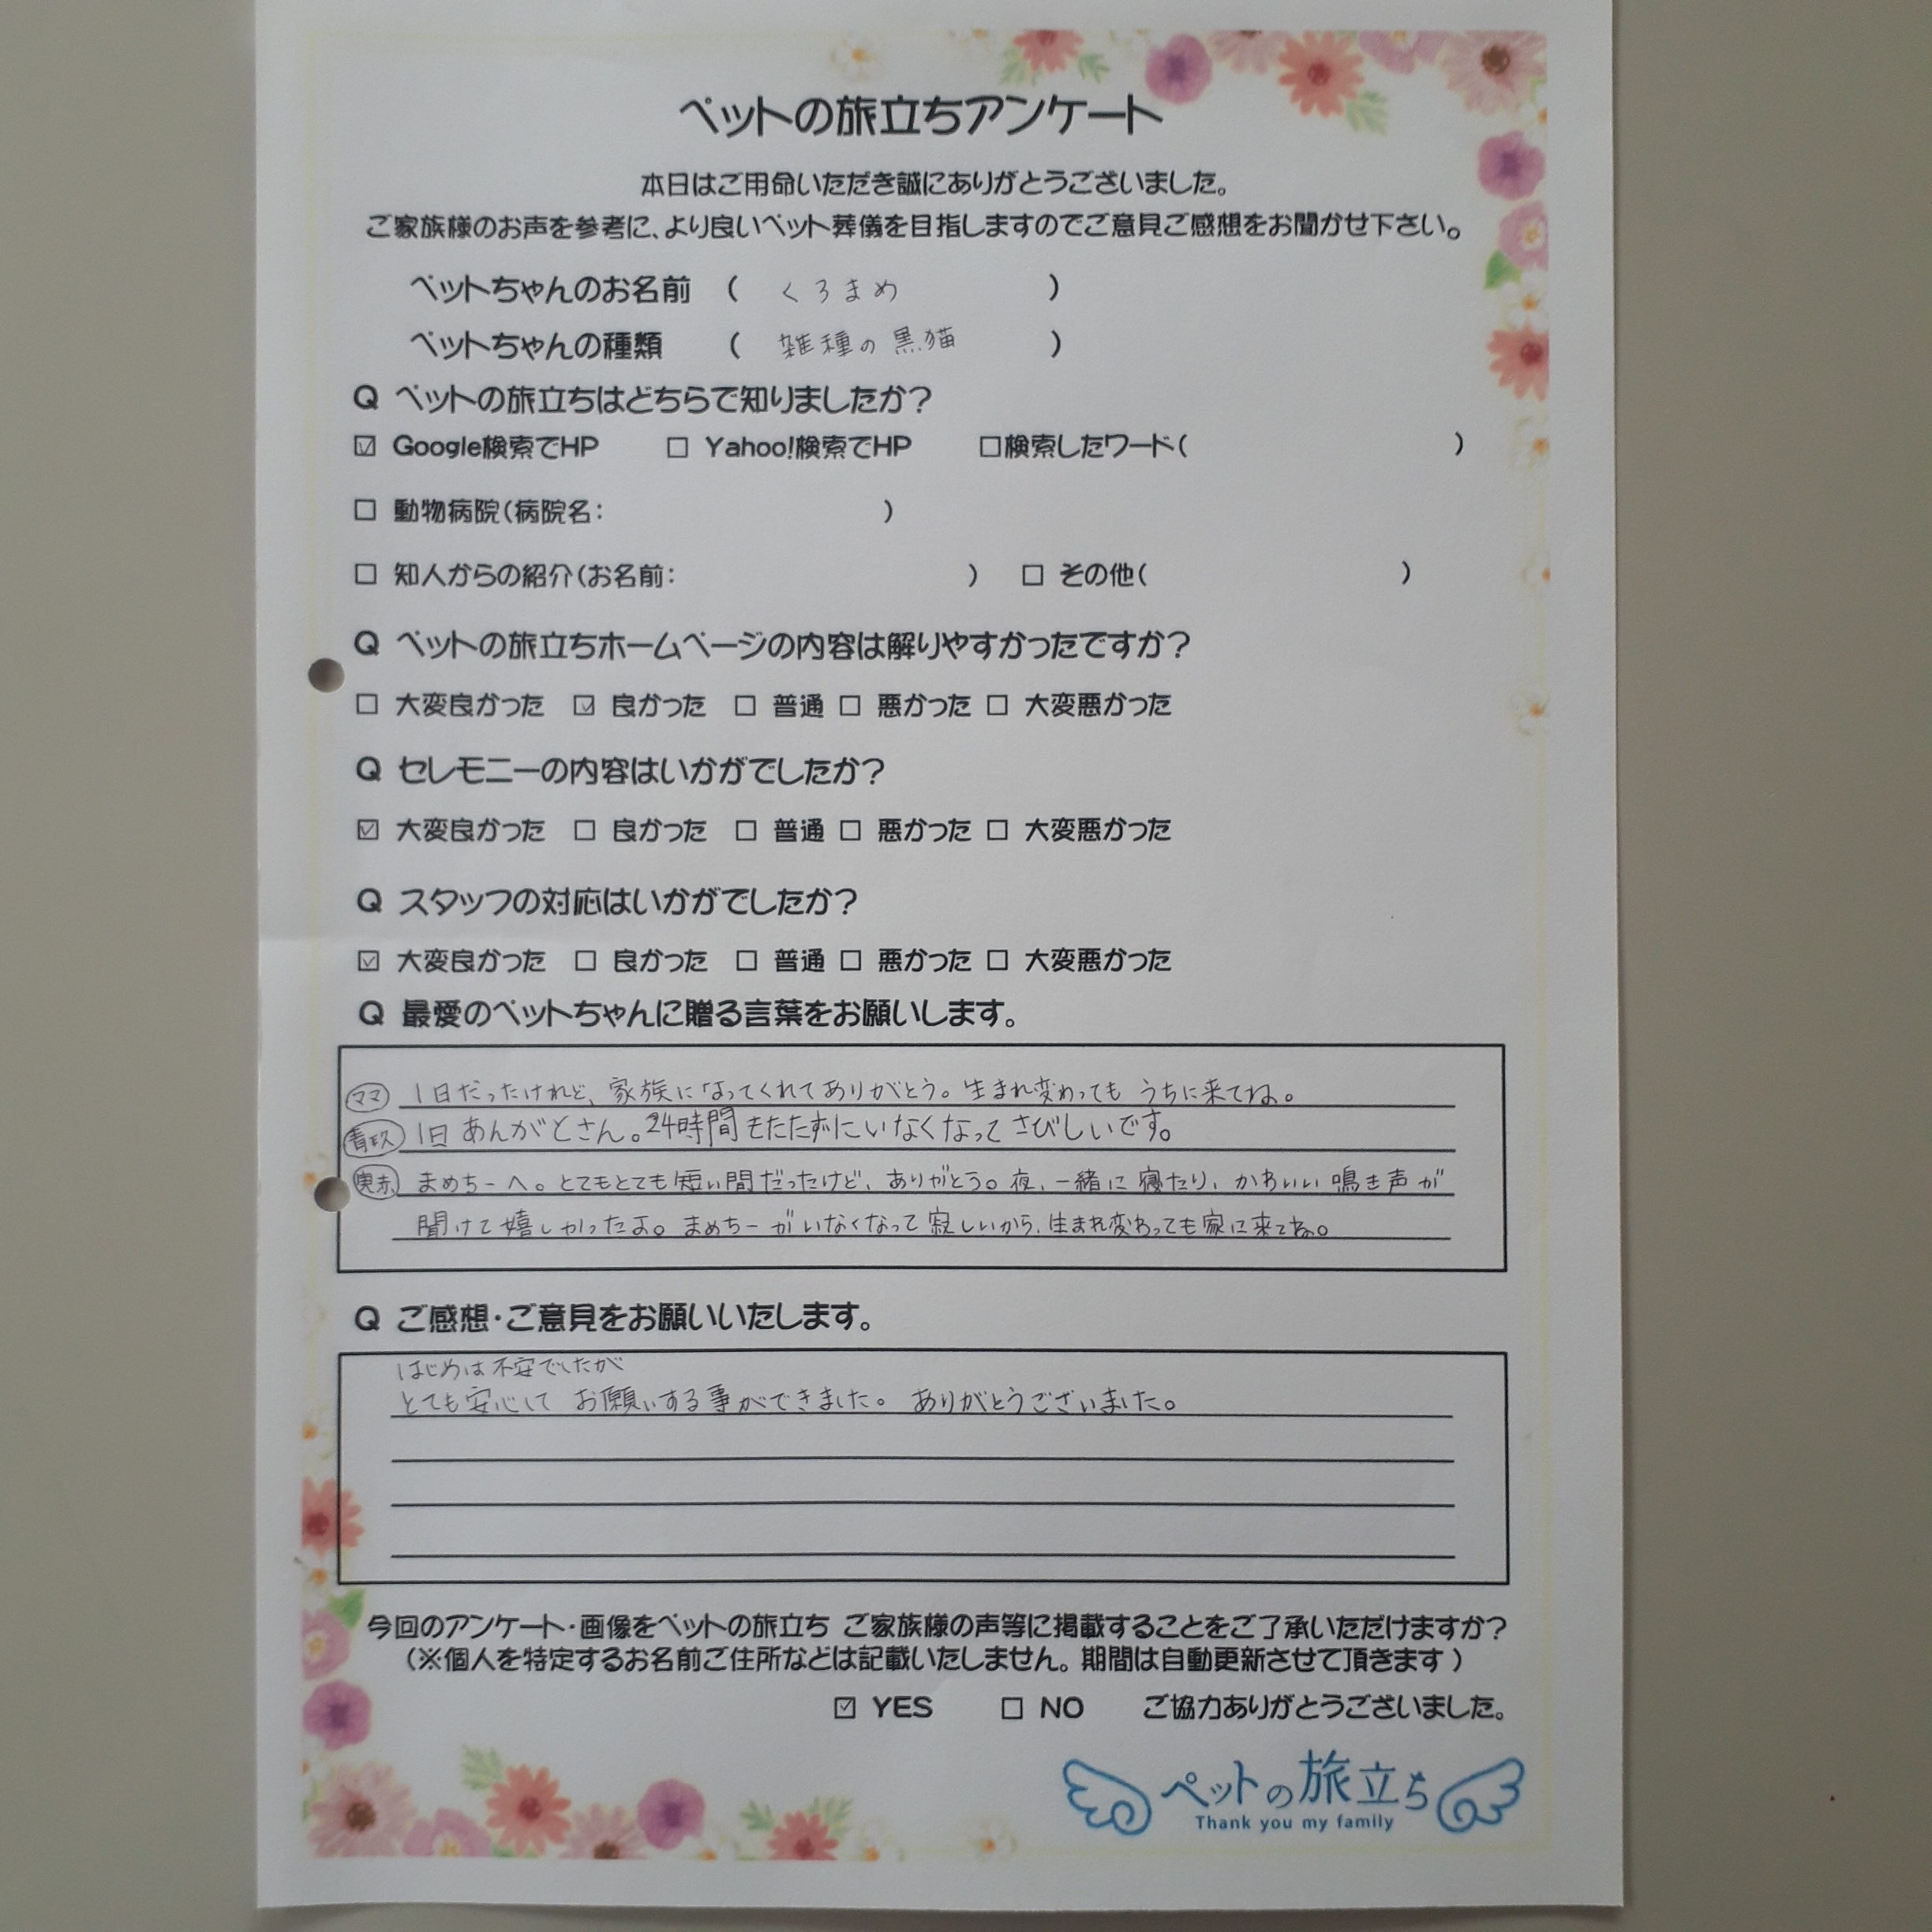 ペットの旅立ちアンケート
本日はご用命いただき誠にありがとうございました。
ご家族様のお声を参考に、より良いペット葬儀を目指しますのでご意見ご感想をお聞かせ下さい。
ペットちゃんのお名前 ( くろまめ )
ペットちゃんの種類 ( 雑種の黒猫 )
Q ペットの旅立ちはどちらで知りましたか?
☑ Google検索でHP □ Yahoo!検索でHP □検索したワード( )
□ 動物病院(病院名: )
□ 知人からの紹介(お名前: ) □ その他( )
Q ペットの旅立ちホームページの内容は解りやすかったですか?
□ 大変良かった ☑ 良かった □ 普通 □ 悪かった □ 大変悪かった
Q セレモニーの内容はいかがでしたか?
☑ 大変良かった □ 良かった □ 普通 □ 悪かった □ 大変悪かった
Q スタッフの対応はいかがでしたか?
☑ 大変良かった □ 良かった □ 普通 □ 悪かった □ 大変悪かった
Q 最愛のペットちゃんに贈る言葉をお願いします。
ママ 1日だったけれど、家族になってくれてありがとう。生まれ変わっても うちに来てね。
1日 あんがとさん。24時間もたたずにいなくなって さびしいです。
まめちーへ。とてもとても短い間だったけど、ありがとう。夜、一緒に寝たり、かわいい鳴き声が
聞けて嬉しかったよ。まめちーがいなくなって寂しいから、生まれ変わっても家に来てね。
Q ご感想・ご意見をお願いいたします。
はじめは不安でしたが
とても安心して お願いする事ができました。 ありがとうございました。
今回のアンケート・画像をペットの旅立ち ご家族様の声等に掲載することをご了承いただけますか?
(※個人を特定するお名前ご住所などは記載いたしません。期間は自動更新させて頂きます)
☑ YES □ NO ご協力ありがとうございました。
ペットの旅立ち
Thank you my family